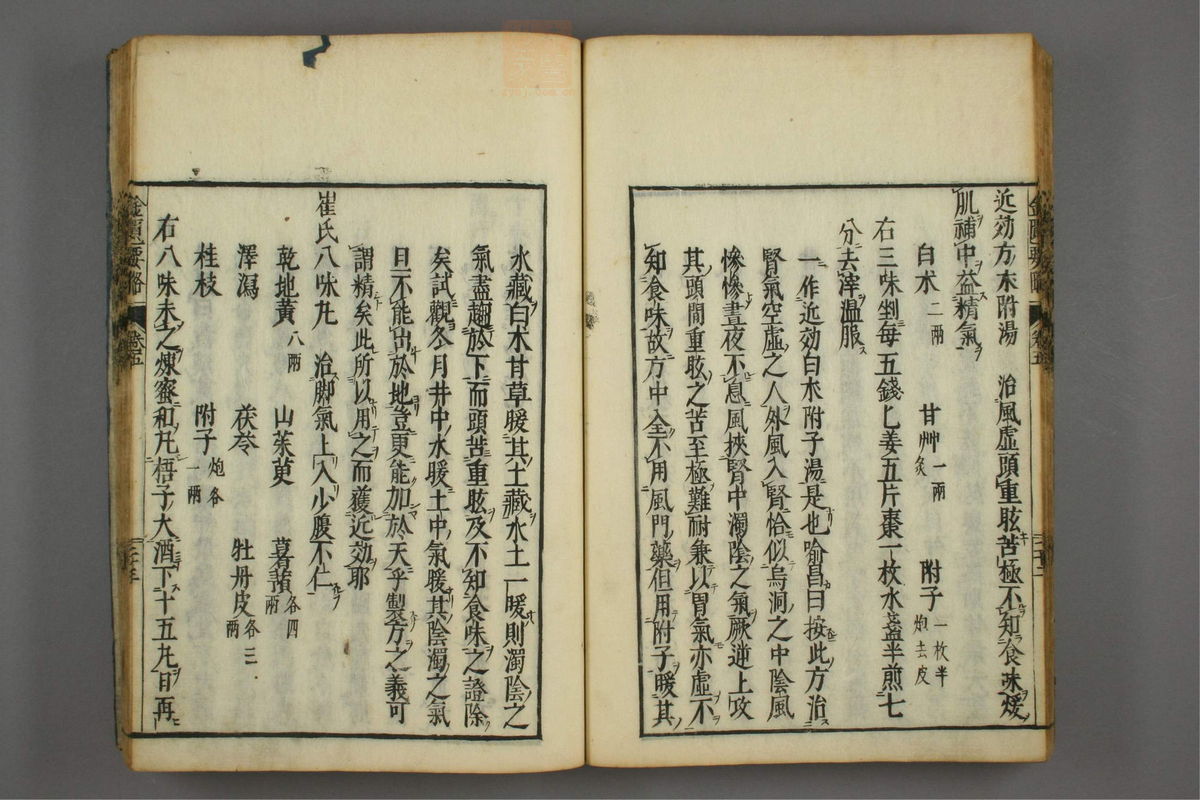 近効方朮附湯　治風虛頭重眩苦極不知食味煖
肌補中益精氣
白朮二兩　甘艸一兩炙　附子一枚半炮去皮
右三味剉每五錢匕姜五片棗一枚水盞半煎七
分去滓溫服
一作近効白朮附子湯是也喻昌曰按此方治
腎氣空虛之人外風入腎恰似烏洞之中陰風
慘慘晝夜不息風挾腎中濁陰之氣厥逆上攻
其頭間重眩之苦至極難耐兼以胃氣亦虛不
知食味故方中全不用風門藥但用附子暖其
水藏白朮甘草暖其土藏水土一暖則濁陰之
氣盡趨於下而頭苦重眩及不知食味之證除
矣試觀冬月井中水暖土中氣暖其陰濁之氣
且不能出於地豈更能加於天乎製方之義可
謂精矣此所以用之而獲近効耶
崔氏八味丸　治脚氣上入少腹不仁
乾地黃八兩　山茱萸　薯蕷各四兩
澤瀉　茯苓　牡丹皮各三兩
桂枝　附子炮各一兩
右八味末之煉蜜和丸梧子大酒下十五丸日再
金匱要略
卷五
金匱要略
卷五